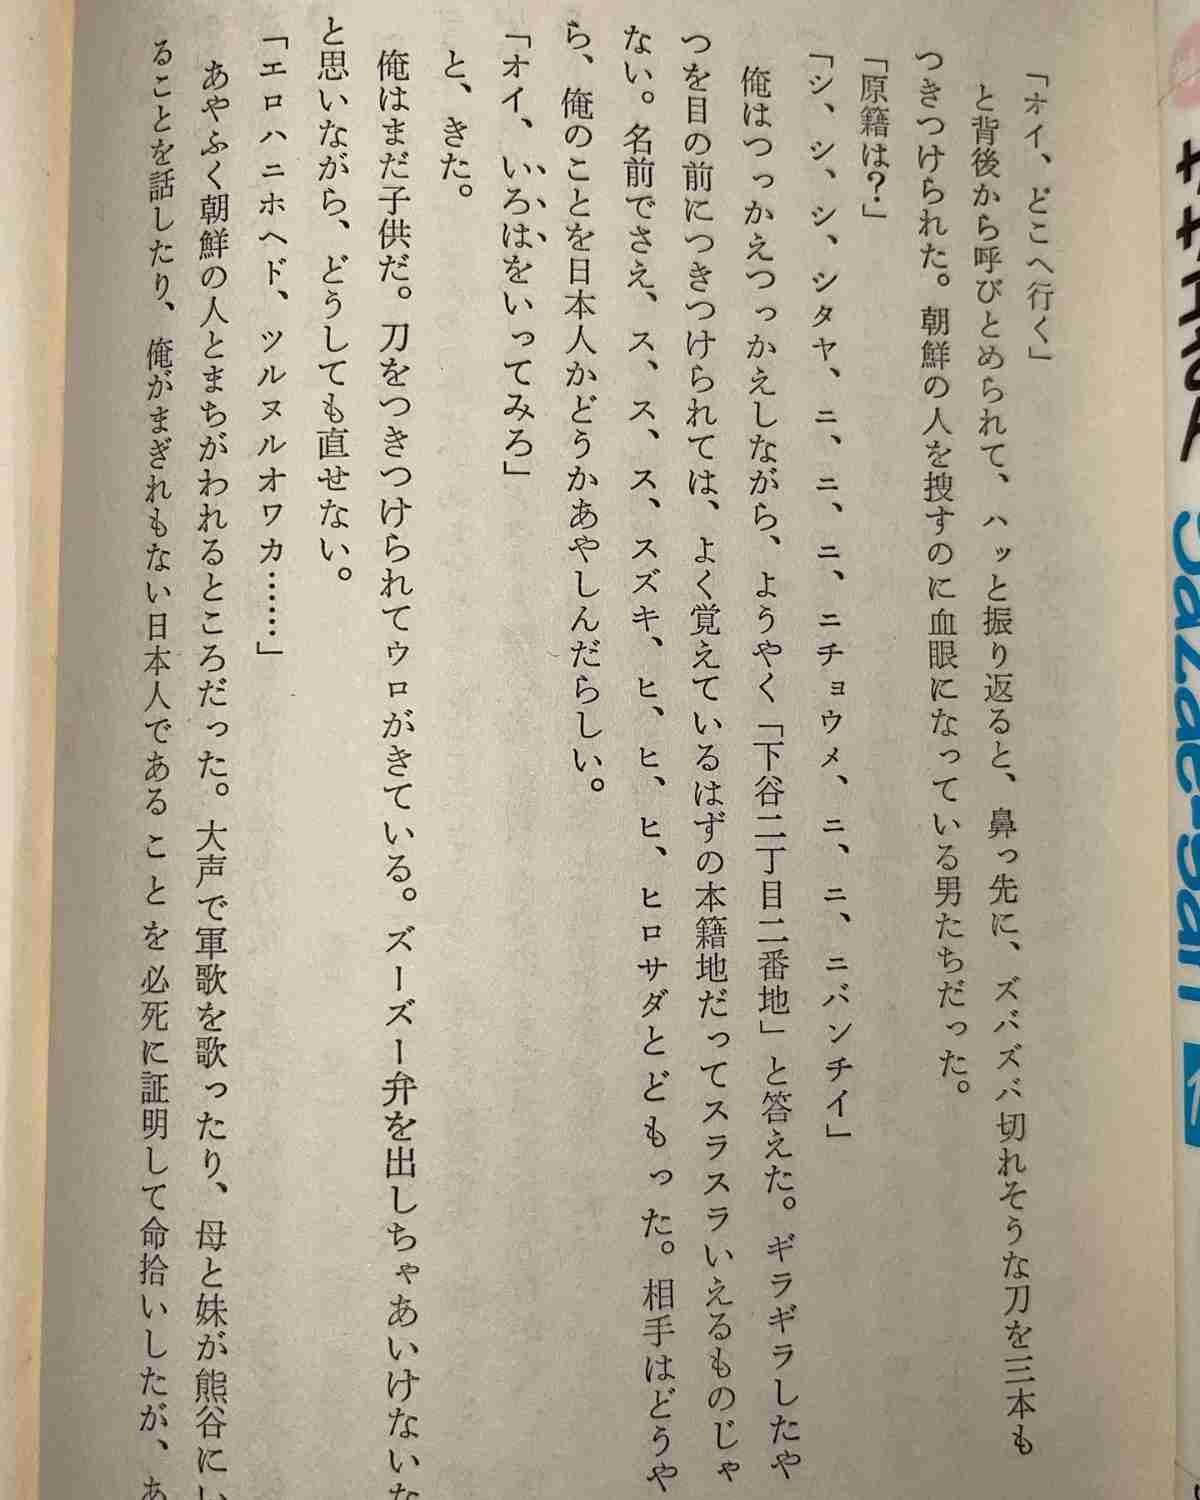 「オイ、どこへ行く」
と背後から呼びとめられて、ハッと振り返ると、鼻っ先に、ズバズバ切れそうな刀を三本も
つきつけられた。朝鮮の人を捜すのに血眼になっている男たちだった。
「原籍は？」
「シ、シ、シ、シタヤ、ニ、ニ、ニ、ニチョウメ、ニ、ニ、ニバンチイ」
俺はつっかえつっかえしながら、ようやく「下谷二丁目二番地」と答えた。ギラギラしたや
つを目の前につきつけられては、よく覚えているはずの本籍地だってスラスラいえるものじゃ
ない。名前でさえ、ス、ス、ス、スズキ、ヒ、ヒ、ヒ、ヒロサダとどもった。相手はどうや
ら、俺のことを日本人かどうかあやしんだらしい。
「オイ、いろはをいってみろ」
と、きた。
俺はまだ子供だ。刀をつきつけられてウロがきている。ズーズー弁を出しちゃあいけないな
と思いながら、どうしても直せない。
「エロハニホヘド、ツルヌルオワカ……」
あやふく朝鮮の人とまちがわれるところだった。大声で軍歌を歌ったり、母と妹が熊谷にい
ることを話したり、俺がまぎれもない日本人であることを必死に証明して命拾いしたが、あ
サザエさん
Sazae-san